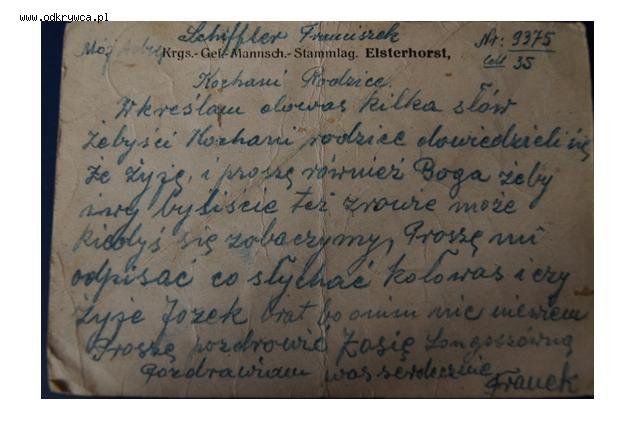 www.odkrywca.pl
Schiffler Franciszek
Mój Adres Krgs.-Gef.-Mannsch.-Stammlag. Elsterhorst, Nr: 9375
35
Kochani Rodzice.
Wkreślam dowas kilka słów
żebyści Kochani rodzice dowiedzieli się
że żyję, i proszę również Boga żeby
i wy byliście też zrowie może
kiedyś się zobaczymy, Proszę mi
odpisać co słychać kołowas i czy
żyje Jozek brat bo onim nic niewiem
Proszę pozdrowić Zosię
Pozdrawiam was serdecznie
Franek